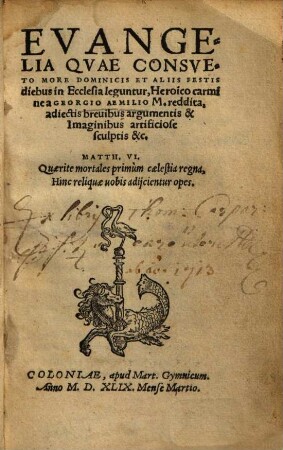 EVANGE-
LIA QVAE CONSVE-
TO MORE DOMINICIS ET ALIIS FESTIS
diebus in Ecclesia leguntur, Heroico carmi
ne a GEORGIO AEMILIO M. reddita,
adiectis brevibus argumentis &
Imaginibus artificiose
sculptis &c.
MATTH. VI.
Quærite mortales primùm cælestia regna,
Hinc reliquæ uobis adijcientur opes.
Ex libris
1713
COLONIAE, apud Mart. Gymnicum.
Anno M. D. XLIX. Mense Martio.